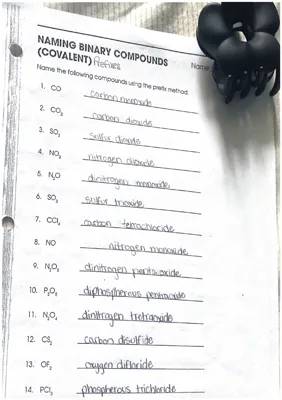 NAMING BINARY COMPOUNDS
(COVALENT) Prefixes Name
Name the following compounds using the prefix method.
1. CO carbon monoxide
2. CO₂ carbon dioxide
3. SO₂ sulfur dioxide
4. NO₂ nitrogen dioxide
5. N₂O dinitrogen monoxide
6. SO₃ sulfur trioxide
7. CCl₄ carbon tetrachloride
8. NO nitrogen monoxide
9. N₂O₅ dinitrogen pentoxide
10. P₂O₅ diphospherous pentoxide
11. N₂O₄ dinitrogen tretraoxide
12. CS₂ carbon disulfide
13. OF₂ oxygen difloride
14. PCl₃ phospherous trichloride